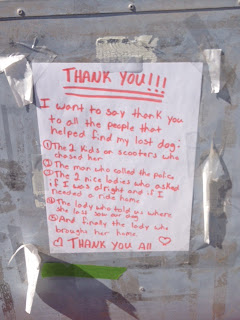 THANK YOU!!!
I want to say thank you
to all the people that
helped find my lost dog:
① The 2 kids on scooters who
chased her
② The man who called the police
③ The 2 nice ladies who asked
if I was alright and if I
needed a ride home
④ The lady who told us where
she last saw our dog
⑤ And finally the lady who
brought her home.
♡ THANK YOU All ♡